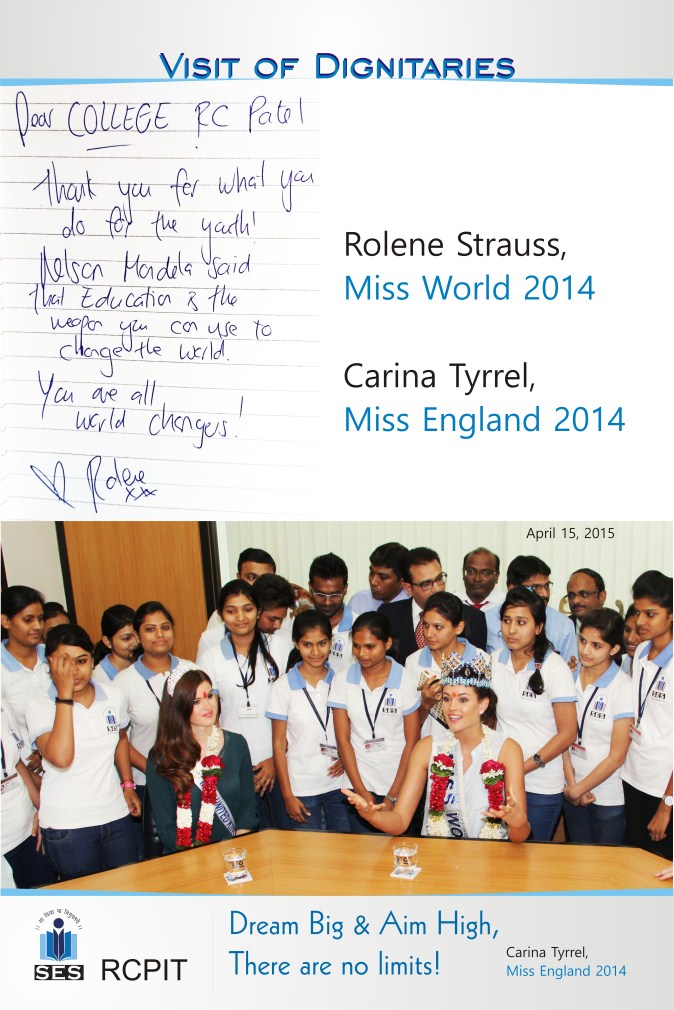 VISIT OF DIGNITARIES
Dear COLLEGE RC Patel
Thank you for what you
do for the youth!
Nelson Mandela said
that Education is the
weapon you can use to
change the world.
You are all
world changers!
Rolene
xxx
Rolene Strauss,
Miss World 2014
Carina Tyrrel,
Miss England 2014
April 15, 2015
SES
SES
SES
SES
MISS WO
।। सा विद्या या विमुक्तये ।।
SES
RCPIT
Dream Big & Aim High,
There are no limits!
Carina Tyrrel,
Miss England 2014